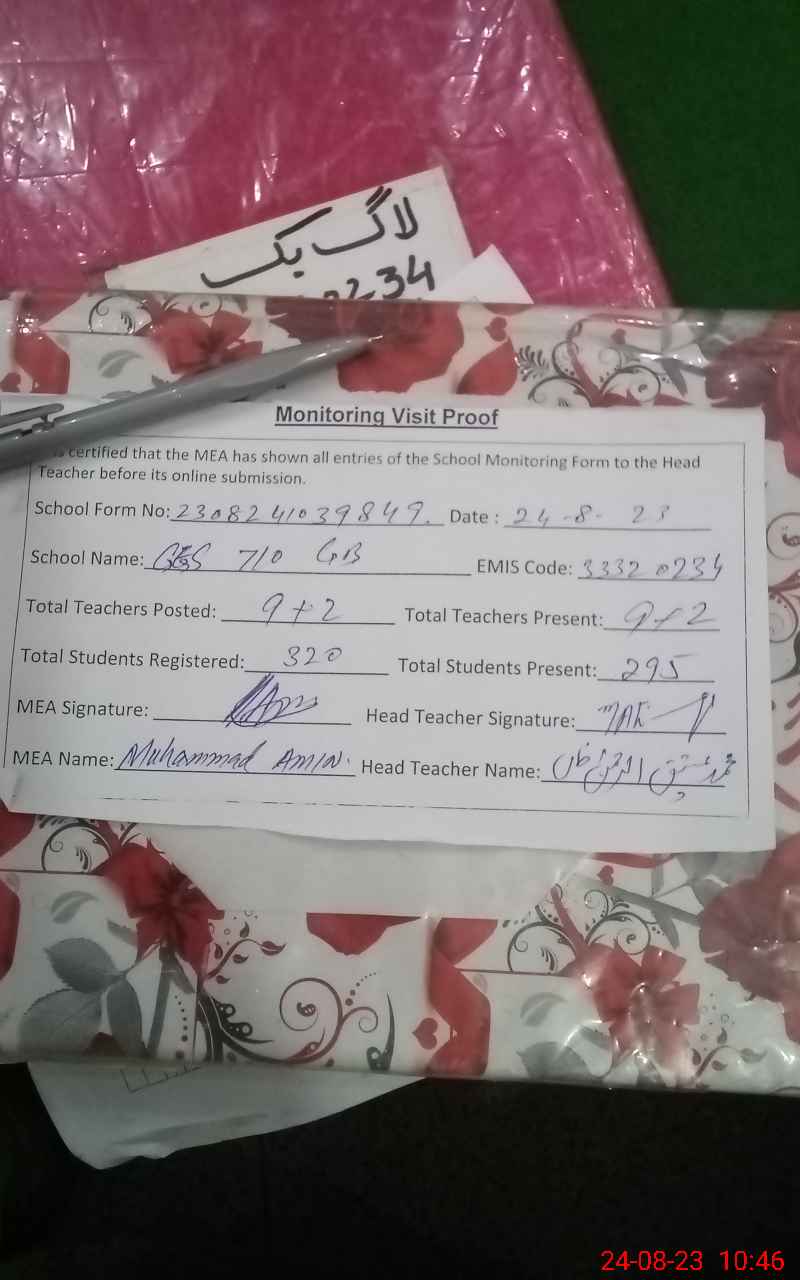 لاگ بک
0234
Monitoring Visit Proof
is certified that the MEA has shown all entries of the School Monitoring Form to the Head
Teacher before its online submission.
School Form No: 2308241039849. Date : 24-8-23
School Name: GES 710 GB EMIS Code: 33320234
Total Teachers Posted: 9+2 Total Teachers Present: 9+2
Total Students Registered: 320 Total Students Present: 295
MEA Signature: Head Teacher Signature:
MEA Name: Muhammad AMIN. Head Teacher Name:
24-08-23 10:46